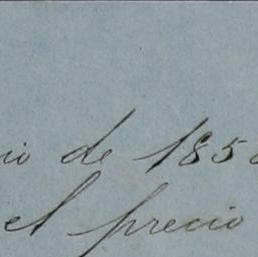 nio de 185
el precio